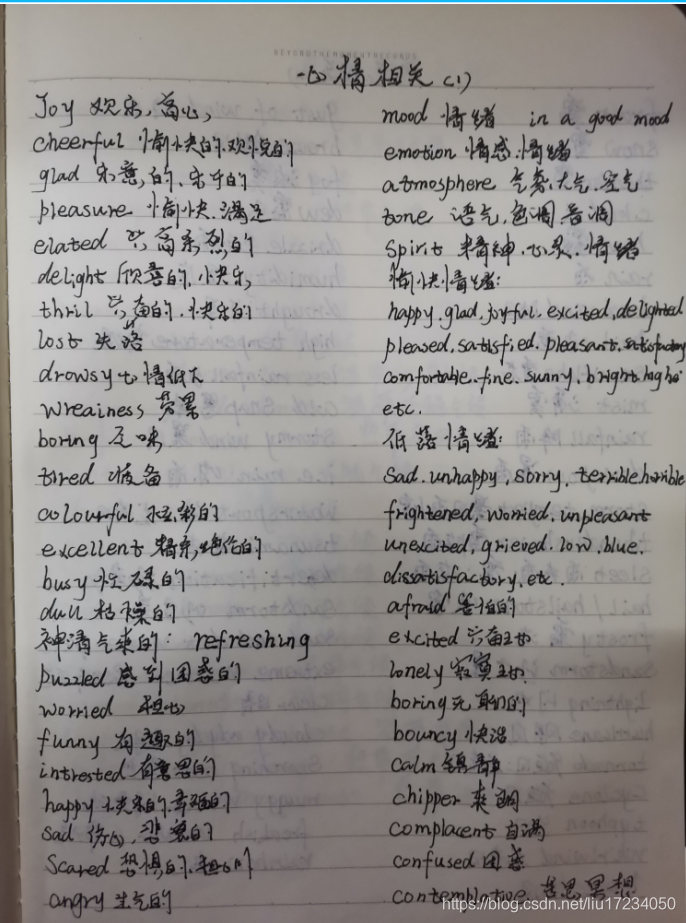 BEYOND THE MOMENT RECORDS
心情相关(1)
Joy 欢乐,高心,
cheerful 愉快的.欢悦的
glad 乐意,的、乐于的
pleasure 愉快.满足
elated 兴高采烈的
delight 欣喜的.快乐,
thril 兴奋的.快乐的
lost 失落
drowsy 心情低下
wreainess 劳累
boring 乏味
tired 疲备
colourful 多彩的
excellent 精采,绝伦的
busy 忙碌的
dull 枯燥的
神清气爽的: refreshing
puzzled 感到困惑的
worried 担心
funny 有趣的
intrested 有意思的
happy 快乐的.幸福的
sad 伤心,悲哀的
Scared 恐惧的.
angry 生气的
mood 情绪 in a good mood
emotion 情感.情绪
atmosphere 气氛.大气.空气
tone 语气.色调.音调
Spirit 精神.心灵.情绪
愉快情绪:
happy.glad.joyful.excited.delighted
pleased.satisfied.pleasant.satisfactory
comfortable.fine.sunny.bright.high
etc.
低落情绪:
sad.unhappy.sorry.terrible.horrible
frightened.worried.unpleasant
unexcited.grieved.low.blue.
dissatisfactory.etc.
afraid 害怕的
excited 兴奋地
lonely 寂寞地.
boring 无聊的
bouncy 快活
calm 镇静
chipper 爽朗
complacent 自满
confused 困惑
contemplative 苦思冥想
https://blog.csdn.net/liu17234050